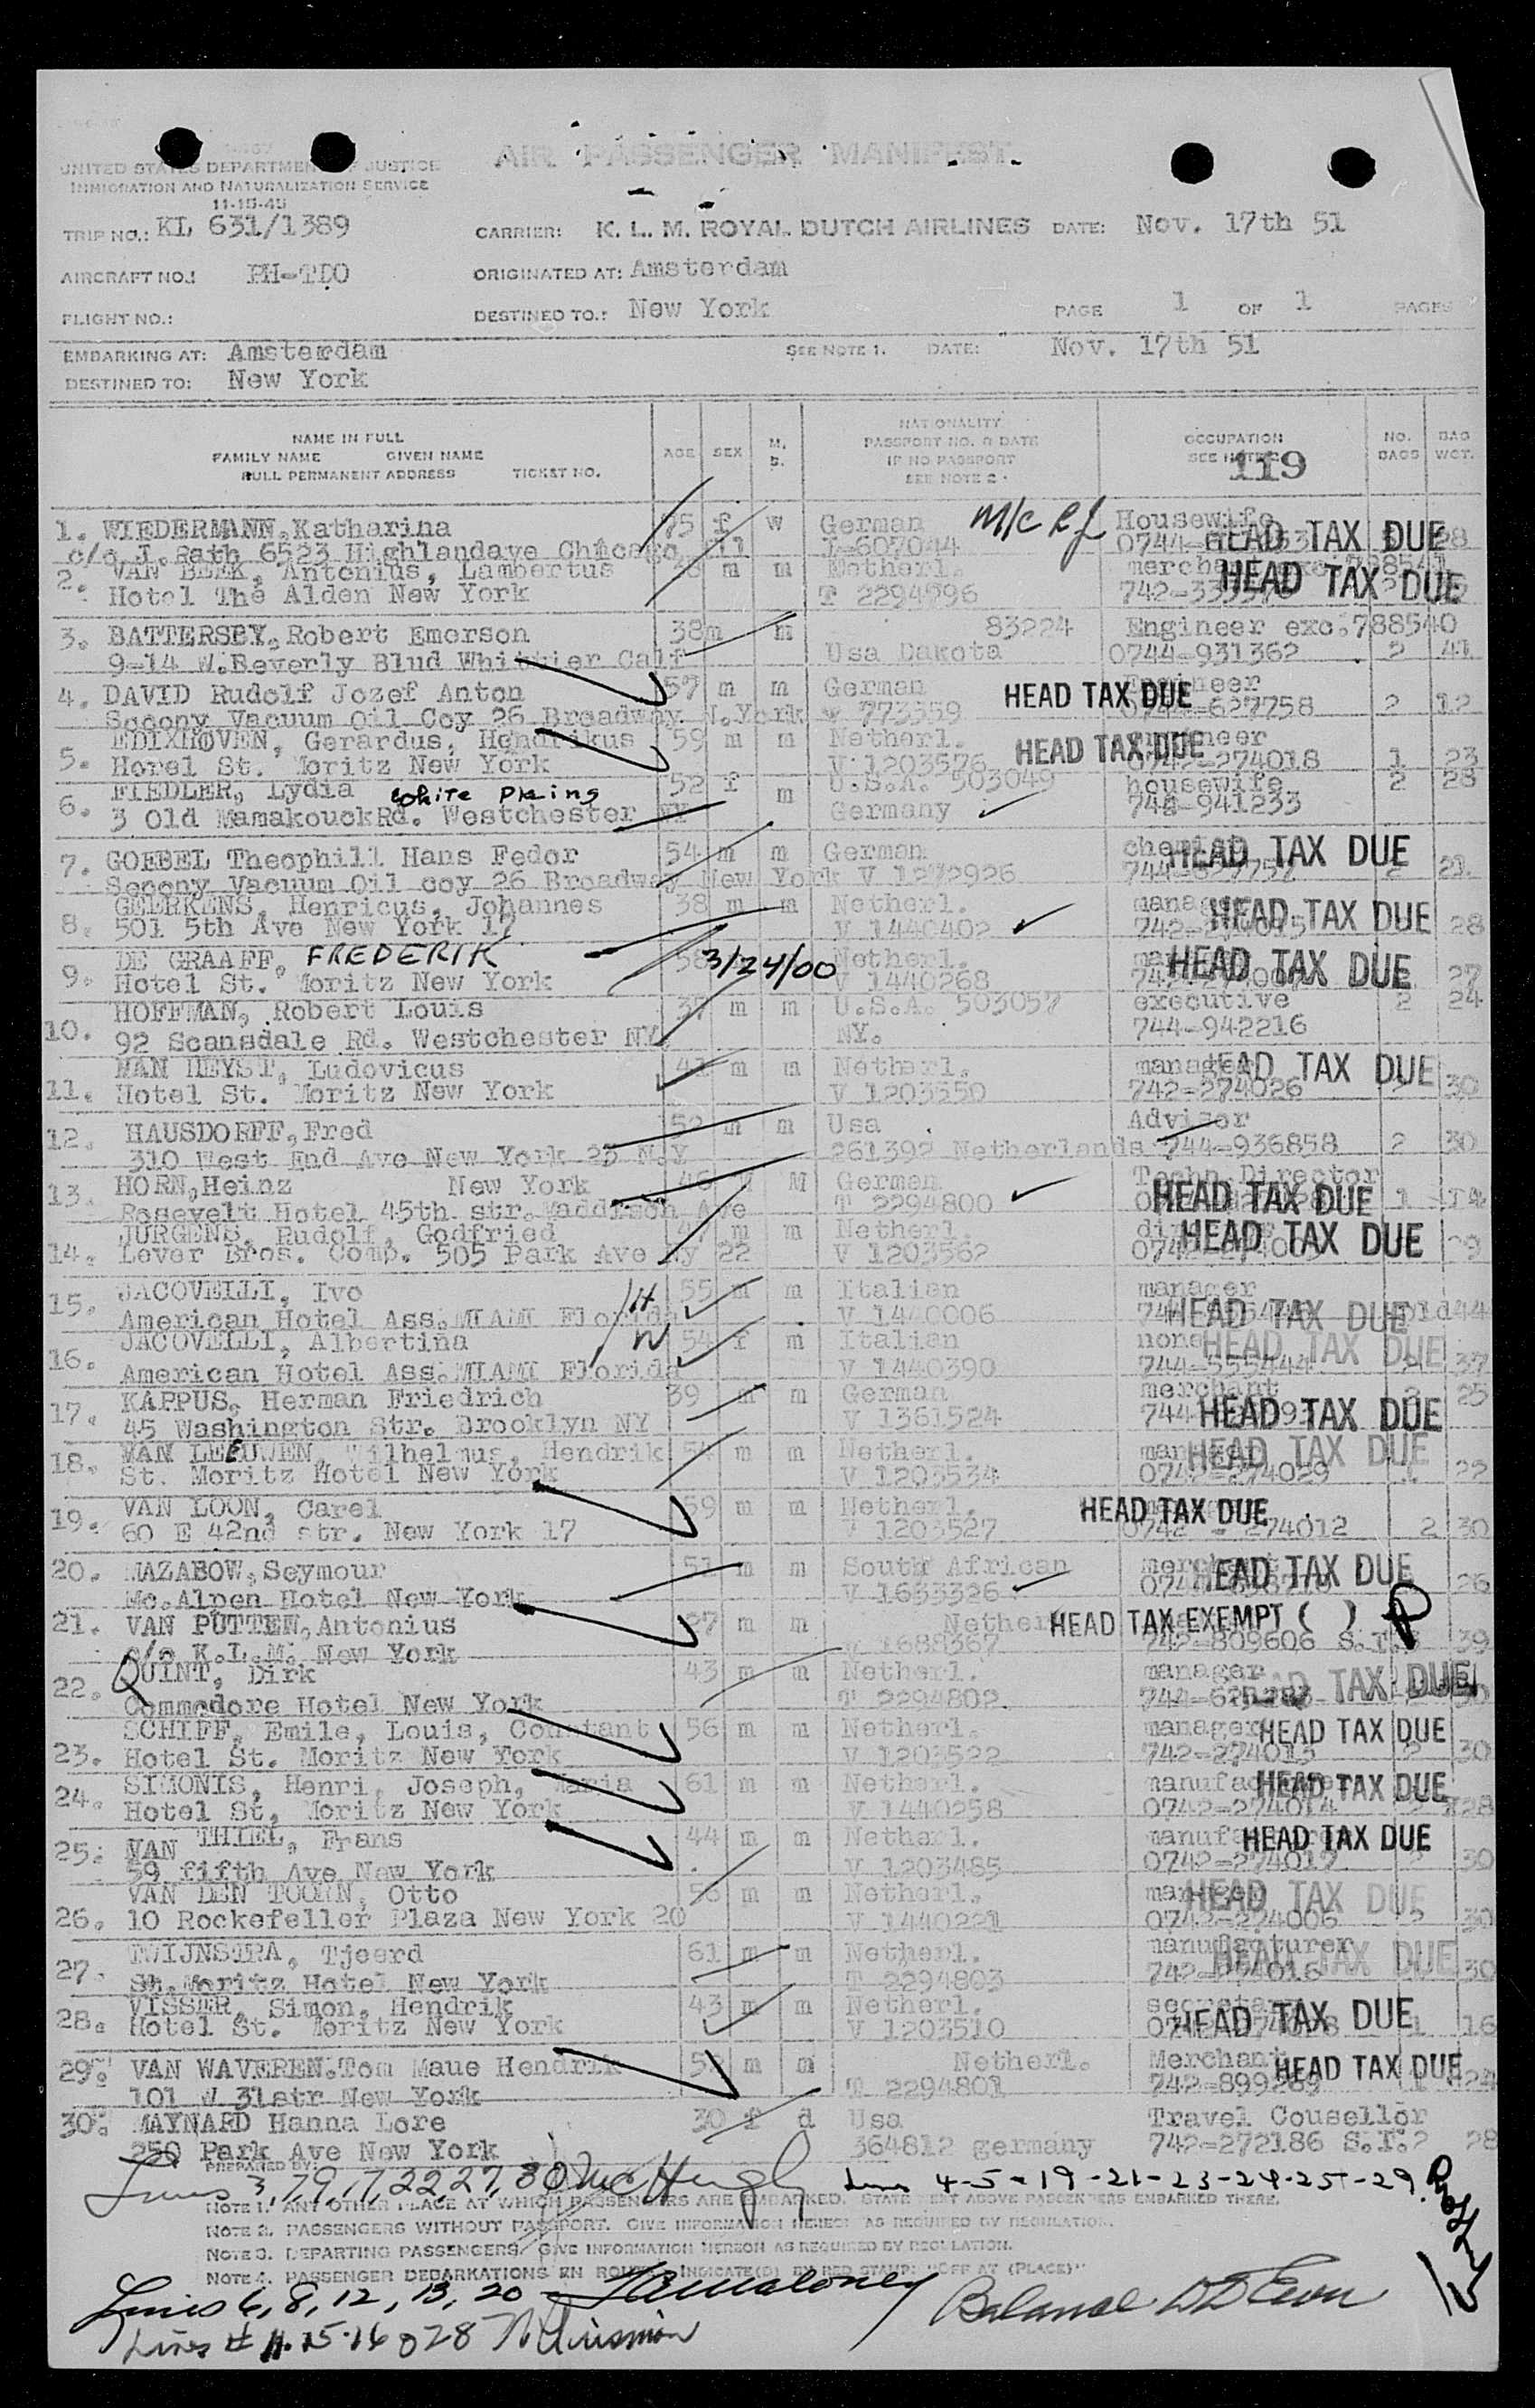 AIR PASSENGER MANIFEST
UNITED STATES DEPARTMENT OF JUSTICE
IMMIGRATION AND NATURALIZATION SERVICE
11-15-45
TRIP NO.: KL 631/1389 CARRIER: K. L. M. ROYAL DUTCH AIRLINES DATE: Nov. 17th 51
AIRCRAFT NO.: PH-TDO ORIGINATED AT: Amsterdam
FLIGHT NO.: DESTINED TO.: New York PAGE 1 OF 1 PAGES
EMBARKING AT: Amsterdam SEE NOTE 1. DATE: Nov. 17th 51
DESTINED TO: New York
NAME IN FULL
FAMILY NAME GIVEN NAME
FULL PERMANENT ADDRESS TICKET NO.
AGE SEX M. S.
NATIONALITY
PASSPORT NO. & DATE
IF NO PASSPORT
SEE NOTE 2
OCCUPATION
SEE NOTE
119
NO. BAGS BAG WGT.
1. WIEDERMANN, Katharina 75 f w German M/C Housewife
c/o J. Rath 6523 Highlandave Chicago Ill 0744- HEAD TAX DUE 28
2. VAN BEEK, Antonius, Lambertus m m Netherl. merchant
Hotel The Alden New York T 2294796 HEAD TAX DUE
3. BATTERSBY, Robert Emerson 38 m m 83224 Engineer exc. 788540
9-14 W. Beverly Blud Whittier Calf Usa Dakota 0744-931362 2 41
4. DAVID Rudolf Jozef Anton 57 m m German HEAD TAX DUE Engineer
Socony Vacuum Oil Coy 26 Broadway N.York 773559 0744-627758 2 12
5. EDIXHOVEN, Gerardus, Hendrikus 59 m m Netherl. HEAD TAX DUE
Horel St. Moritz New York V 1203576 0742-274018 1 23
6. FIEDLER, Lydia White Plains 52 f m U.S.A. 503049 housewife 2 28
3 Old MamakouckRd. Westchester NY Germany 744-941233
7. GOEBEL Theophill Hans Fedor 54 m m German chemist HEAD TAX DUE
Socony Vacuum Oil coy 26 Broadway New York V 1272926 744-627757 2 21
8. GEERKENS, Henricus, Johannes 38 m m Netherl. manager HEAD TAX DUE
501 5th Ave New York 17 V 1440402 28
9. DE GRAAFF, FREDERIK 58 3/24/00 Netherl. HEAD TAX DUE
Hotel St. Moritz New York V 1440268 27
10. HOFFMAN, Robert Louis 37 m m U.S.A. 503057 executive 2 24
92 Scansdale Rd. Westchester NY. NY. 744-942216
11. VAN HEYST, Ludovicus 41 m m Netherl. manager HEAD TAX DUE
Hotel St. Moritz New York V 1203550 742-274026 30
12. HAUSDORFF, Fred 52 m m Usa Advisor
310 West End Ave New York 23 N.Y 261392 Netherlands 744-936858 2 30
13. HORN, Heinz New York 46 M M German Techn. Director
Rosevelt Hotel 45th str. Maddison Ave T 2294800 HEAD TAX DUE 1 14
14. JURGENS, Rudolf, Godfried 47 m m Netherl. HEAD TAX DUE
Lever Bros. Comp. 505 Park Ave Ny 22 V 1203562 29
15. JACOVELLI, Ivo H 55 m m Italian manager
American Hotel Ass. MIAMI Florida V 1440006 HEAD TAX DUE 44
16. JACOVELLI, Albertina W 54 f m Italian none HEAD TAX DUE
American Hotel Ass. MIAMI Florida V 1440390 744-555444 37
17. KAPPUS, Herman Friedrich 39 m m German merchant 25
45 Washington Str. Brooklyn NY V 1361524 HEAD TAX DUE
18. VAN LEEUWEN, Wilhelmus, Hendrik m m Netherl. manager HEAD TAX DUE
St. Moritz Hotel New York V 1203534 0742-274029 22
19. VAN LOON, Carel 59 m m Netherl. HEAD TAX DUE
60 E 42nd str. New York 17 V 1203527 0742 - 274012 2 30
20. MAZABOW, Seymour 51 m m South African merchant HEAD TAX DUE
Mc. Alpen Hotel New York V 1653326 26
21. VAN PUTTEN, Antonius 27 m m Netherl. HEAD TAX EXEMPT ( )
c/o K.L.M. New York V 1688367 742-809606 S.T. 39
22. QUINT, Dirk 43 m m Netherl. manager HEAD TAX DUE
Commodore Hotel New York T 2294802 30
23. SCHIFF, Emile, Louis, Constant 56 m m Netherl. manager HEAD TAX DUE
Hotel St. Moritz New York V 1203522 742-274013 2 30
24. SIMONIS, Henri, Joseph, Maria 61 m m Netherl. manufacturer HEAD TAX DUE
Hotel St, Moritz New York V 1440258 0742-274014 28
25. VAN THIEL, Frans 44 m m Netherl. HEAD TAX DUE
59 fifth Ave New York V 1203485 0742-274017 30
26. VAN DEN TOORN, Otto m m Netherl. manager HEAD TAX DUE
10 Rockefeller Plaza New York 20 V 1440221 0742-274006 2 30
27. TWIJNSTRA, Tjeerd 61 m m Netherl. manufacturer HEAD TAX DUE
St. Moritz Hotel New York T 2294803 742-274016 30
28. VISSER, Simon, Hendrik 43 m m Netherl. secretary HEAD TAX DUE
Hotel St. Moritz New York V 1203510 1 16
29. VAN WAVEREN. Tom Maue Hendrik m m Netherl. Merchant HEAD TAX DUE
101 W 31str New York T 2294801 742-899269 1 24
30. MAYNARD Hanna Lore 30 f d Usa Travel Cousellor
250 Park Ave New York 364812 germany 742-272186 S.T. 2 28
PREPARED BY:
Lines 3, 7, 9, 17, 22, 27, 30 McHugh Lines 4-5-19-21-23-24-25-29
NOTE 1. ANY OTHER PLACE AT WHICH PASSENGERS ARE EMBARKED. STATE NEXT ABOVE PASSENGERS EMBARKED THERE.
NOTE 2. PASSENGERS WITHOUT PASSPORT. GIVE INFORMATION HEREON AS REQUIRED BY REGULATION.
NOTE 3. DEPARTING PASSENGERS. GIVE INFORMATION HEREON AS REQUIRED BY REGULATION.
NOTE 4. PASSENGER DEBARKATIONS EN ROUTE. INDICATE(D) BY RED STAMP: "OFF AT (PLACE)"
Lines 6, 8, 12, 13, 20 Maloney Balance
Lines # 11. 15. 16 & 28